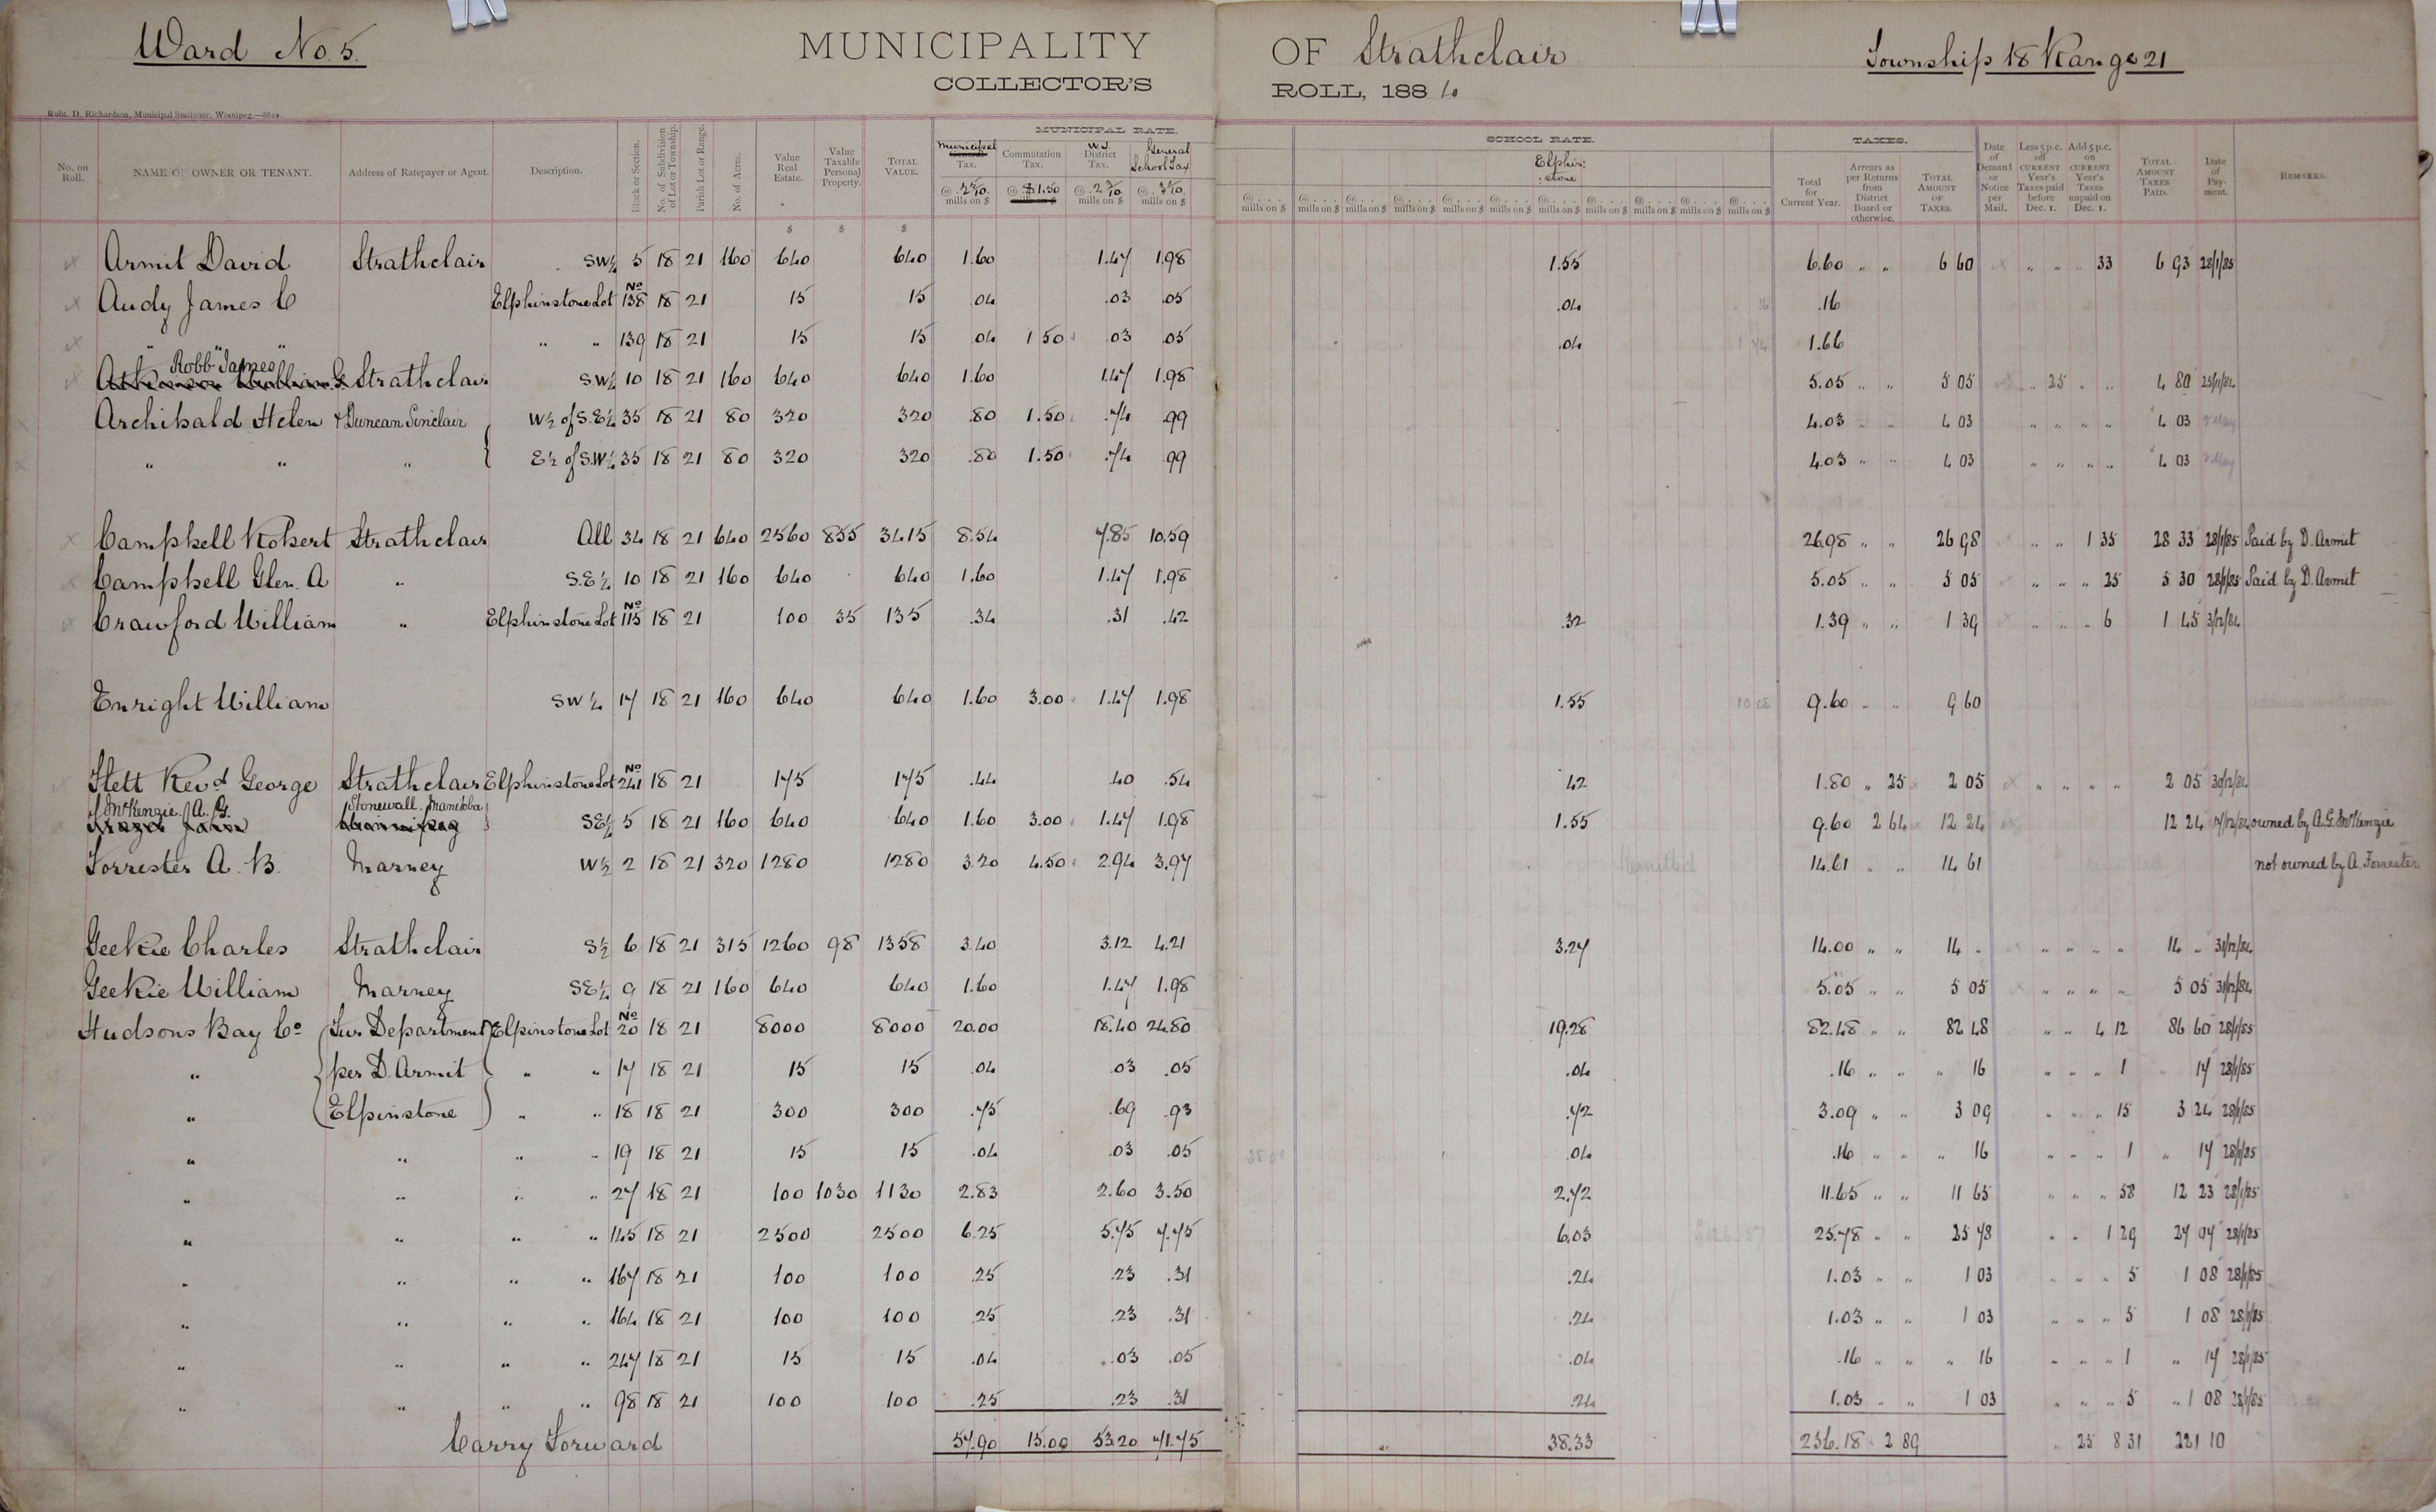 Ward No. 5.
MUNICIPALITY OF Strathclair
Township 18 Range 21
COLLECTOR'S ROLL, 1884
Robt. D. Richardson, Municipal Stationer, Winnipeg.
MUNICIPAL RATE. SCHOOL RATE. TAXES.
No. on Roll. NAME OF OWNER OR TENANT. Address of Ratepayer or Agent. Description. Block or Section. No. of Subdivision of Lot or Township. Parish Lot or Range. No. of Acres. Value Real Estate. Value Taxable Personal Property. TOTAL VALUE. Municipal Tax. Commutation Tax. W.J. District Tax. General School Tax Elphin: :stone Total for Current Year. Arrears as per Returns from District Board or otherwise. TOTAL AMOUNT OF TAXES. Date of Demand or Notice per Mail. Less 5 p.c. off CURRENT Year's Taxes paid before Dec. 1. Add 5 p.c. on CURRENT Year's Taxes unpaid on Dec. 1. TOTAL AMOUNT TAXES PAID. Date of Payment. REMARKS.
@ 2 5/10 mills on $ @ $1.50 mills on $ @ 2 3/10 mills on $ @ 3 1/10 mills on $ @ . . . . mills on $ @ . . . . mills on $ @ . . . . mills on $ @ . . . . mills on $ @ . . . . mills on $ @ . . . . mills on $ @ . . . . mills on $ @ . . . . mills on $ @ . . . . mills on $ @ . . . . mills on $ @ . . . . mills on $
$ $ $
Armit David Strathclair SW¼ 5 18 21 160 640 640 1.60 1.47 1.98 1.55 6.60 " " 6 60 " " " 33 6 93 28/1/85
Audy James C Elphinstone Lot No 138 18 21 15 15 .04 .03 .05 .04 .16
" " " " " 139 18 21 15 15 .04 1 50 .03 .05 .04 1.66
Robb James Strathclair SW¼ 10 18 21 160 640 640 1.60 1.47 1.98 5.05 " " 5 05 " 25 " " 4 80 25/11/84
Archibald Helen & Duncan Sinclair W½ of S.E¼ 35 18 21 80 320 320 .80 1.50 .74 .99 4.03 " " 4 03 " " " " 4 03
" " " E½ of S.W¼ 35 18 21 80 320 320 .80 1.50 .74 .99 4.03 " " 4 03 " " " " 4 03
Campbell Robert Strathclair All 34 18 21 640 2560 855 3415 8.54 7.85 10.59 26.98 " " 26 98 " " 1 35 28 33 28/1/85 Paid by D. Armit
Campbell Glen. A " S.E¼ 10 18 21 160 640 640 1.60 1.47 1.98 5.05 " " 5 05 " " " 25 5 30 28/1/85 Paid by D. Armit
Crawford William " Elphinstone Lot No 115 18 21 100 35 135 .34 .31 .42 .32 1.39 " " 1 39 " " " 6 1 45 3/12/84
Enright William SW¼ 17 18 21 160 640 640 1.60 3.00 1.47 1.98 1.55 9.60 " " 9 60
Flett Revd George Strathclair Elphinstone Lot No 241 18 21 175 175 .44 .40 .54 42 1.80 " 25 2 05 " " " " 2 05 30/12/84
McKenzie A. G. Stonewall Manitoba SE¼ 5 18 21 160 640 640 1.60 3.00 1.47 1.98 1.55 9.60 2 64 12 24 12 24 17/12/84 owned by A.G. McKenzie
Forrester A. B. Marney W½ 2 18 21 320 1280 1280 3.20 4.50 2.94 3.97 Remitted 14.61 " " 14 61 not owned by A. Forrester
Geekie Charles Strathclair S½ 6 18 21 315 1260 98 1358 3.40 3.12 4.21 3.27 14.00 " " 14 - " " " " 14 " 31/12/84
Geekie William Marney SE¼ 9 18 21 160 640 640 1.60 1.47 1.98 5.05 " " 5 05 " " " " 5 05 31/12/84
Hudsons Bay Co Fur Department Elpinstone Lot No 20 18 21 8000 8000 20.00 18.40 24.80 19.28 82.48 " " 82 48 " " 4 12 86 60 28/1/85
" per D. Armit " " 17 18 21 15 15 .04 .03 .05 .04 .16 " " " 16 " " " 1 " 17 28/1/85
" Elpinstone " " 18 18 21 300 300 .75 .69 .93 .72 3.09 " " 3 09 " " " 15 3 24 28/1/85
" " " " 19 18 21 15 15 .04 .03 .05 .04 .16 " " " 16 " " " 1 " 17 28/1/85
" " " " 27 18 21 100 1030 1130 2.83 2.60 3.50 2.72 11.65 " " 11 65 " " " 58 12 23 28/1/85
" " " " 145 18 21 2500 2500 6.25 5.75 7.75 6.03 25.78 " " 25 78 " " 1 29 27 07 28/1/85
" " " " 167 18 21 100 100 .25 .23 .31 .24 1.03 " " 1 03 " " " 5 1 08 28/1/85
" " " " 164 18 21 100 100 .25 .23 .31 .24 1.03 " " 1 03 " " " 5 1 08 28/1/85
" " " " 247 18 21 15 15 .04 .03 .05 .04 .16 " " " 16 " " " 1 " 17 28/1/85
" " " " 98 18 21 100 100 .25 .23 .31 .24 1.03 " " 1 03 " " " 5 " 1 08 28/1/85
Carry Forward 57.90 15.00 53.20 71.75 " 38.33 236.18 2 89 " 25 8 31 221 10